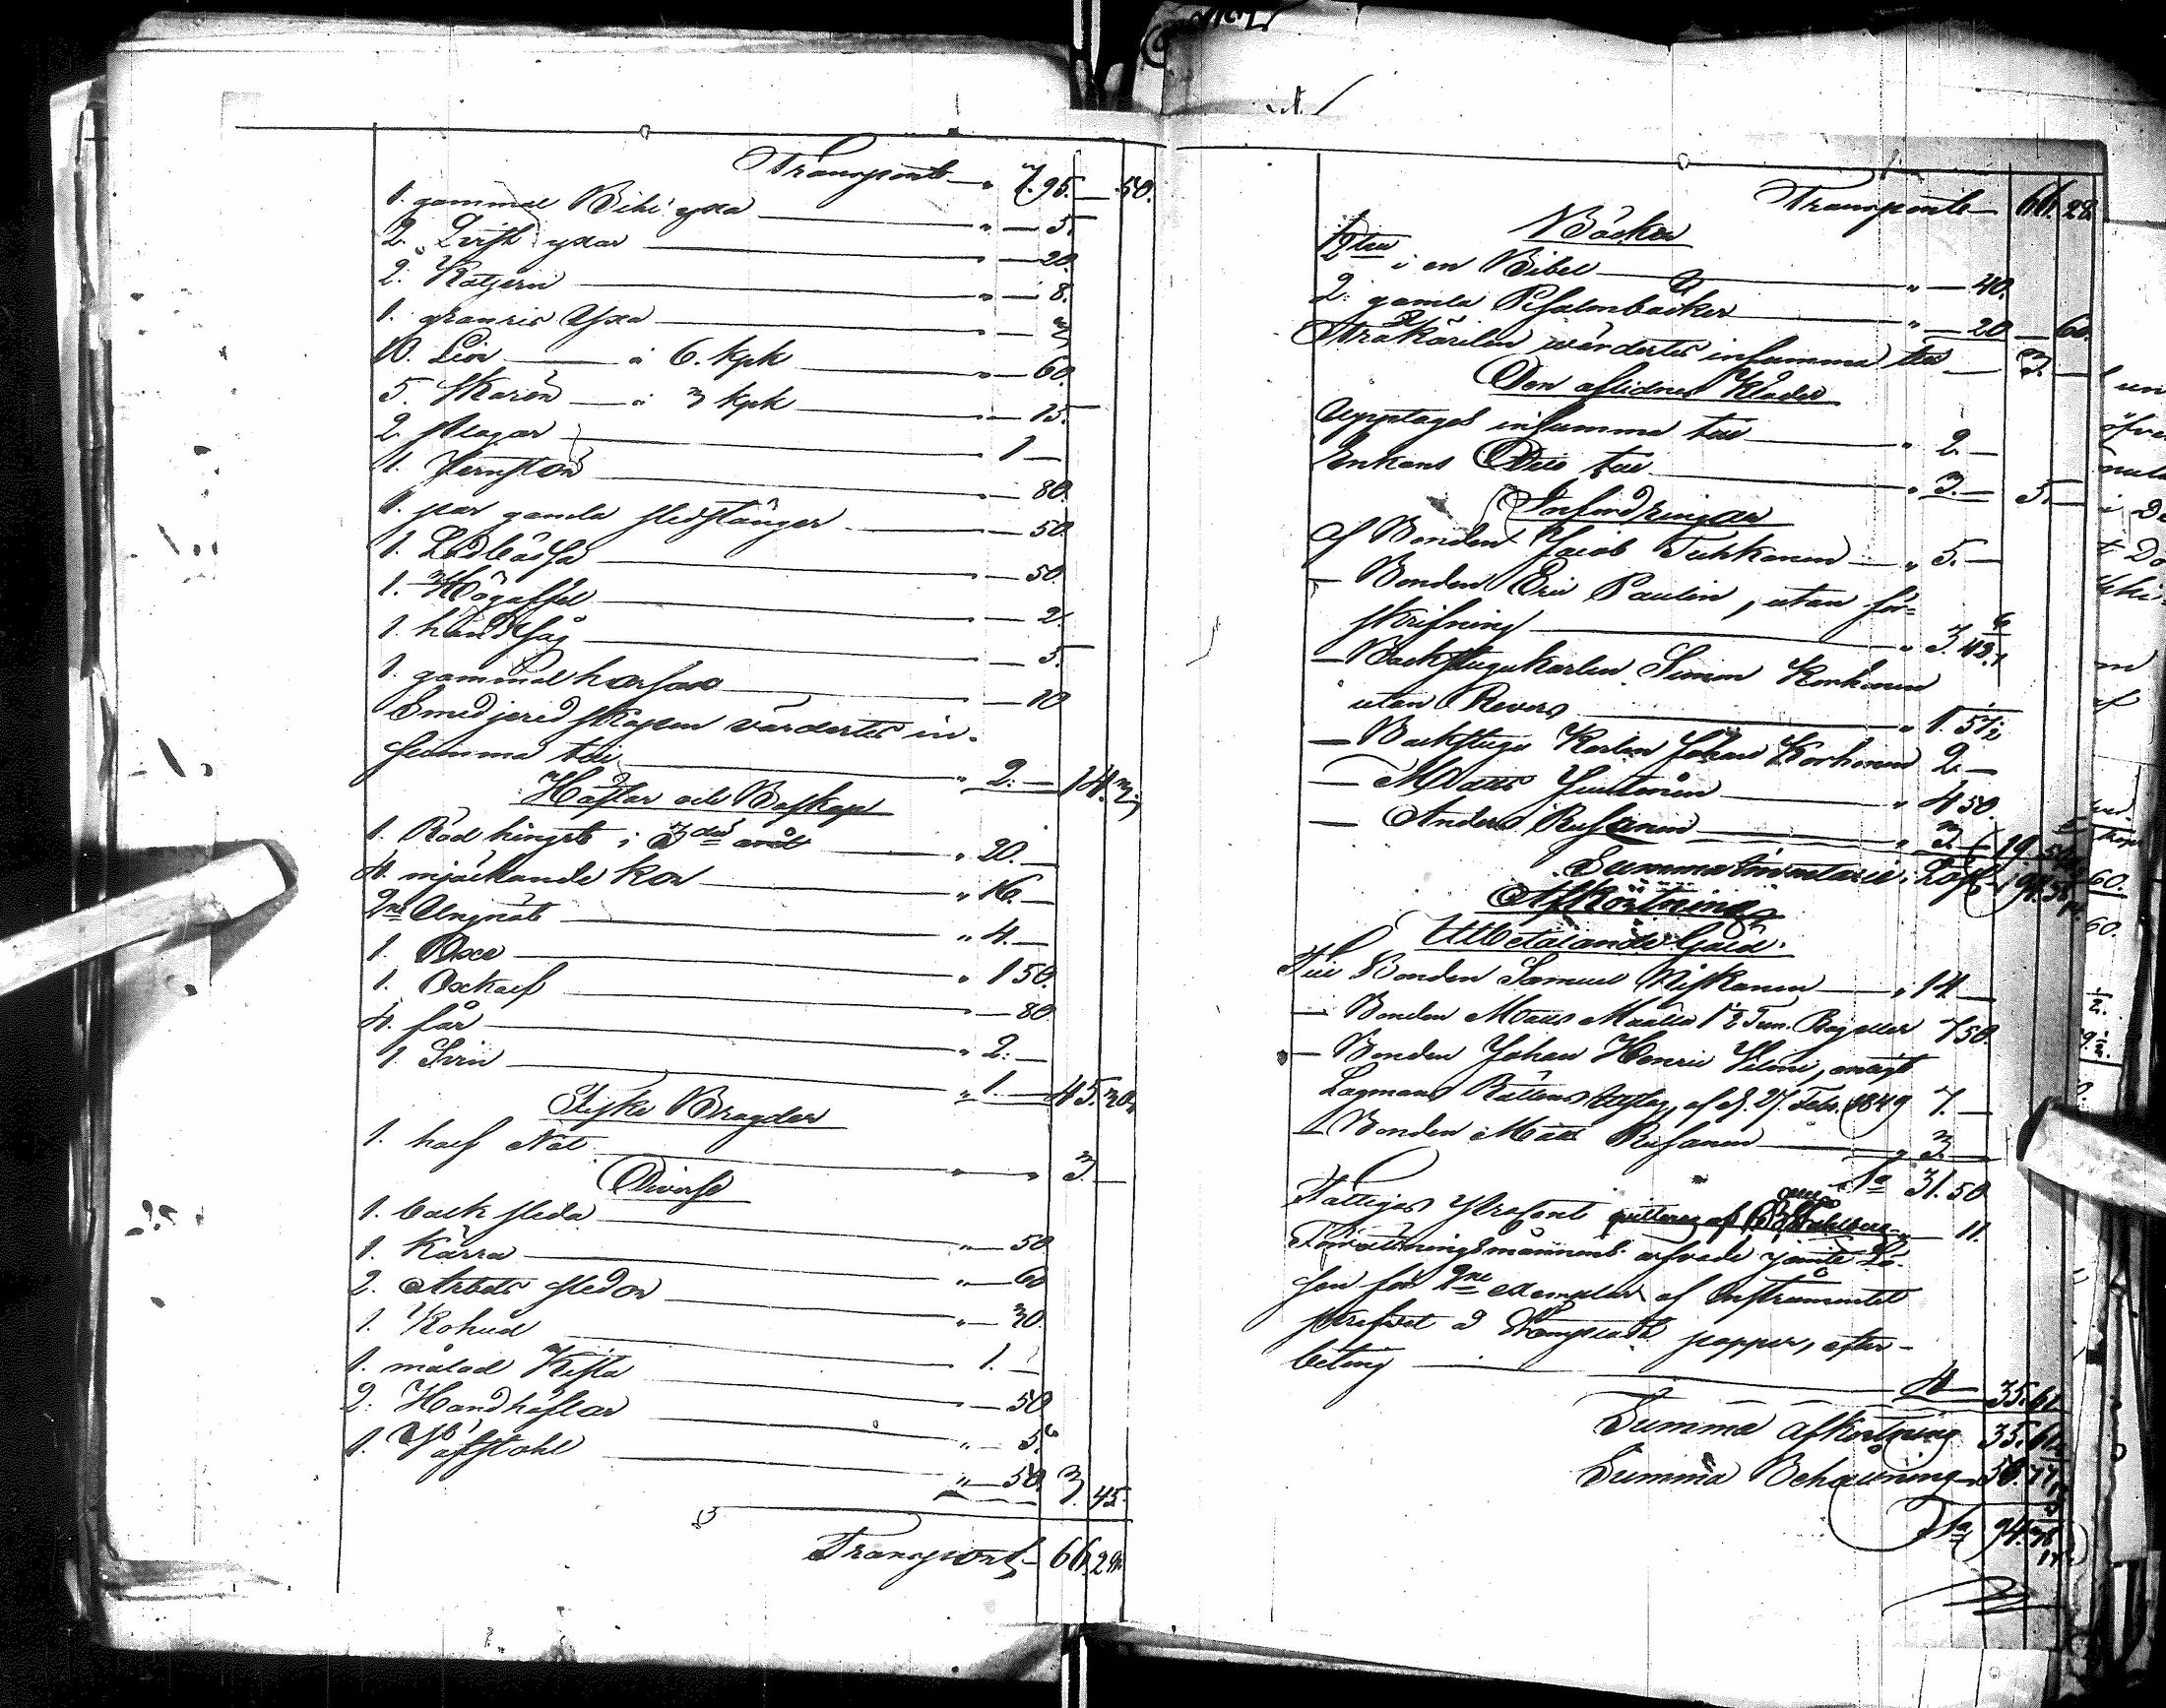 Transport " 7. 95. 50.
1. gammal Bihl yxa " 5.
2. Qvist yxar " 20.
2. Rotjern " 8.
1. granris Yxa " 3
10. Liar à 6. kpk " 60.
5. Skaror à 3 kpk " 15.
2. slagar 1 —
1. Jernstör " 80.
1. par gamla sledstänger " 50.
1. 50.
1. Högaffel " 2.
1. handsåg " 5.
1. gammal harf 10
Smedjeredskapen värderter in-
summa till " 2. — 14.
Hästar och Boskap
1. Röd hingst i 3die året " 20. —
4. mjölkande kor " 16. —
2ne Ungnöt " 4. —
1. Oxe " 1 50.
1. Oxkalf " 80.
4. får " 2. —
1. Svin " 1. — 45. 30.
Fiske Bragder
1. half Not " " 3. —
Diverse
1. back sleda " 50
1. Kärra " 60
2. Arbets sledor " 30.
1. Kohud 1. —
1. målad Kista " 50
2. Handhästar " 5.
1. Väfstohl " 50. 3. 45.
Transport 66. 28.
Transport 66. 28.
Böcker
i en Bibel " 40.
2. gamla Psalmböcker " 20 — 60.
Träkärilen värdertes insumma till 3. —
Den aflidnes Kläder
Upptages insumma till " 2. —
Enkans Dito till " 3. — 5. —
Fordringar
af Bonden Jacob Tuhkanen " 5. —
— Bonden Eric Paulin, utan för-
skrifning " 3. 42.
— Backstugukarlen Simon Korhonen
utan Revers " 1. 57½
— Backstugu Karlen Johan Korhonen 2. —
— Matts Juntunen " 4 50.
— Anders Rusanen " 3. — 19.
Summa Inventarii
Afkortning
Utbetalande Gäld.
Till Bonden Samuel Niskanen " 14. —
— Bonden Matts Määttä 1½ Tun. Råg eller 7 50.
— Bonden Johan Henric enligt
Lagmans Rättens Utslag af d. 27. Febr. 1849 7. —
— Bonden Matts Rusanen " 3. —
Sa 31. 50
Fattigas Procent 11.
Förrättningsmännens arfvode jämte Lö-
sen för 2ne exemplar af Instrumentet
skrefvet å papper, efter-
beting 4 — 35. 61.
Summa afkortning 35. 61.
Summa Behållning
Sa 94.